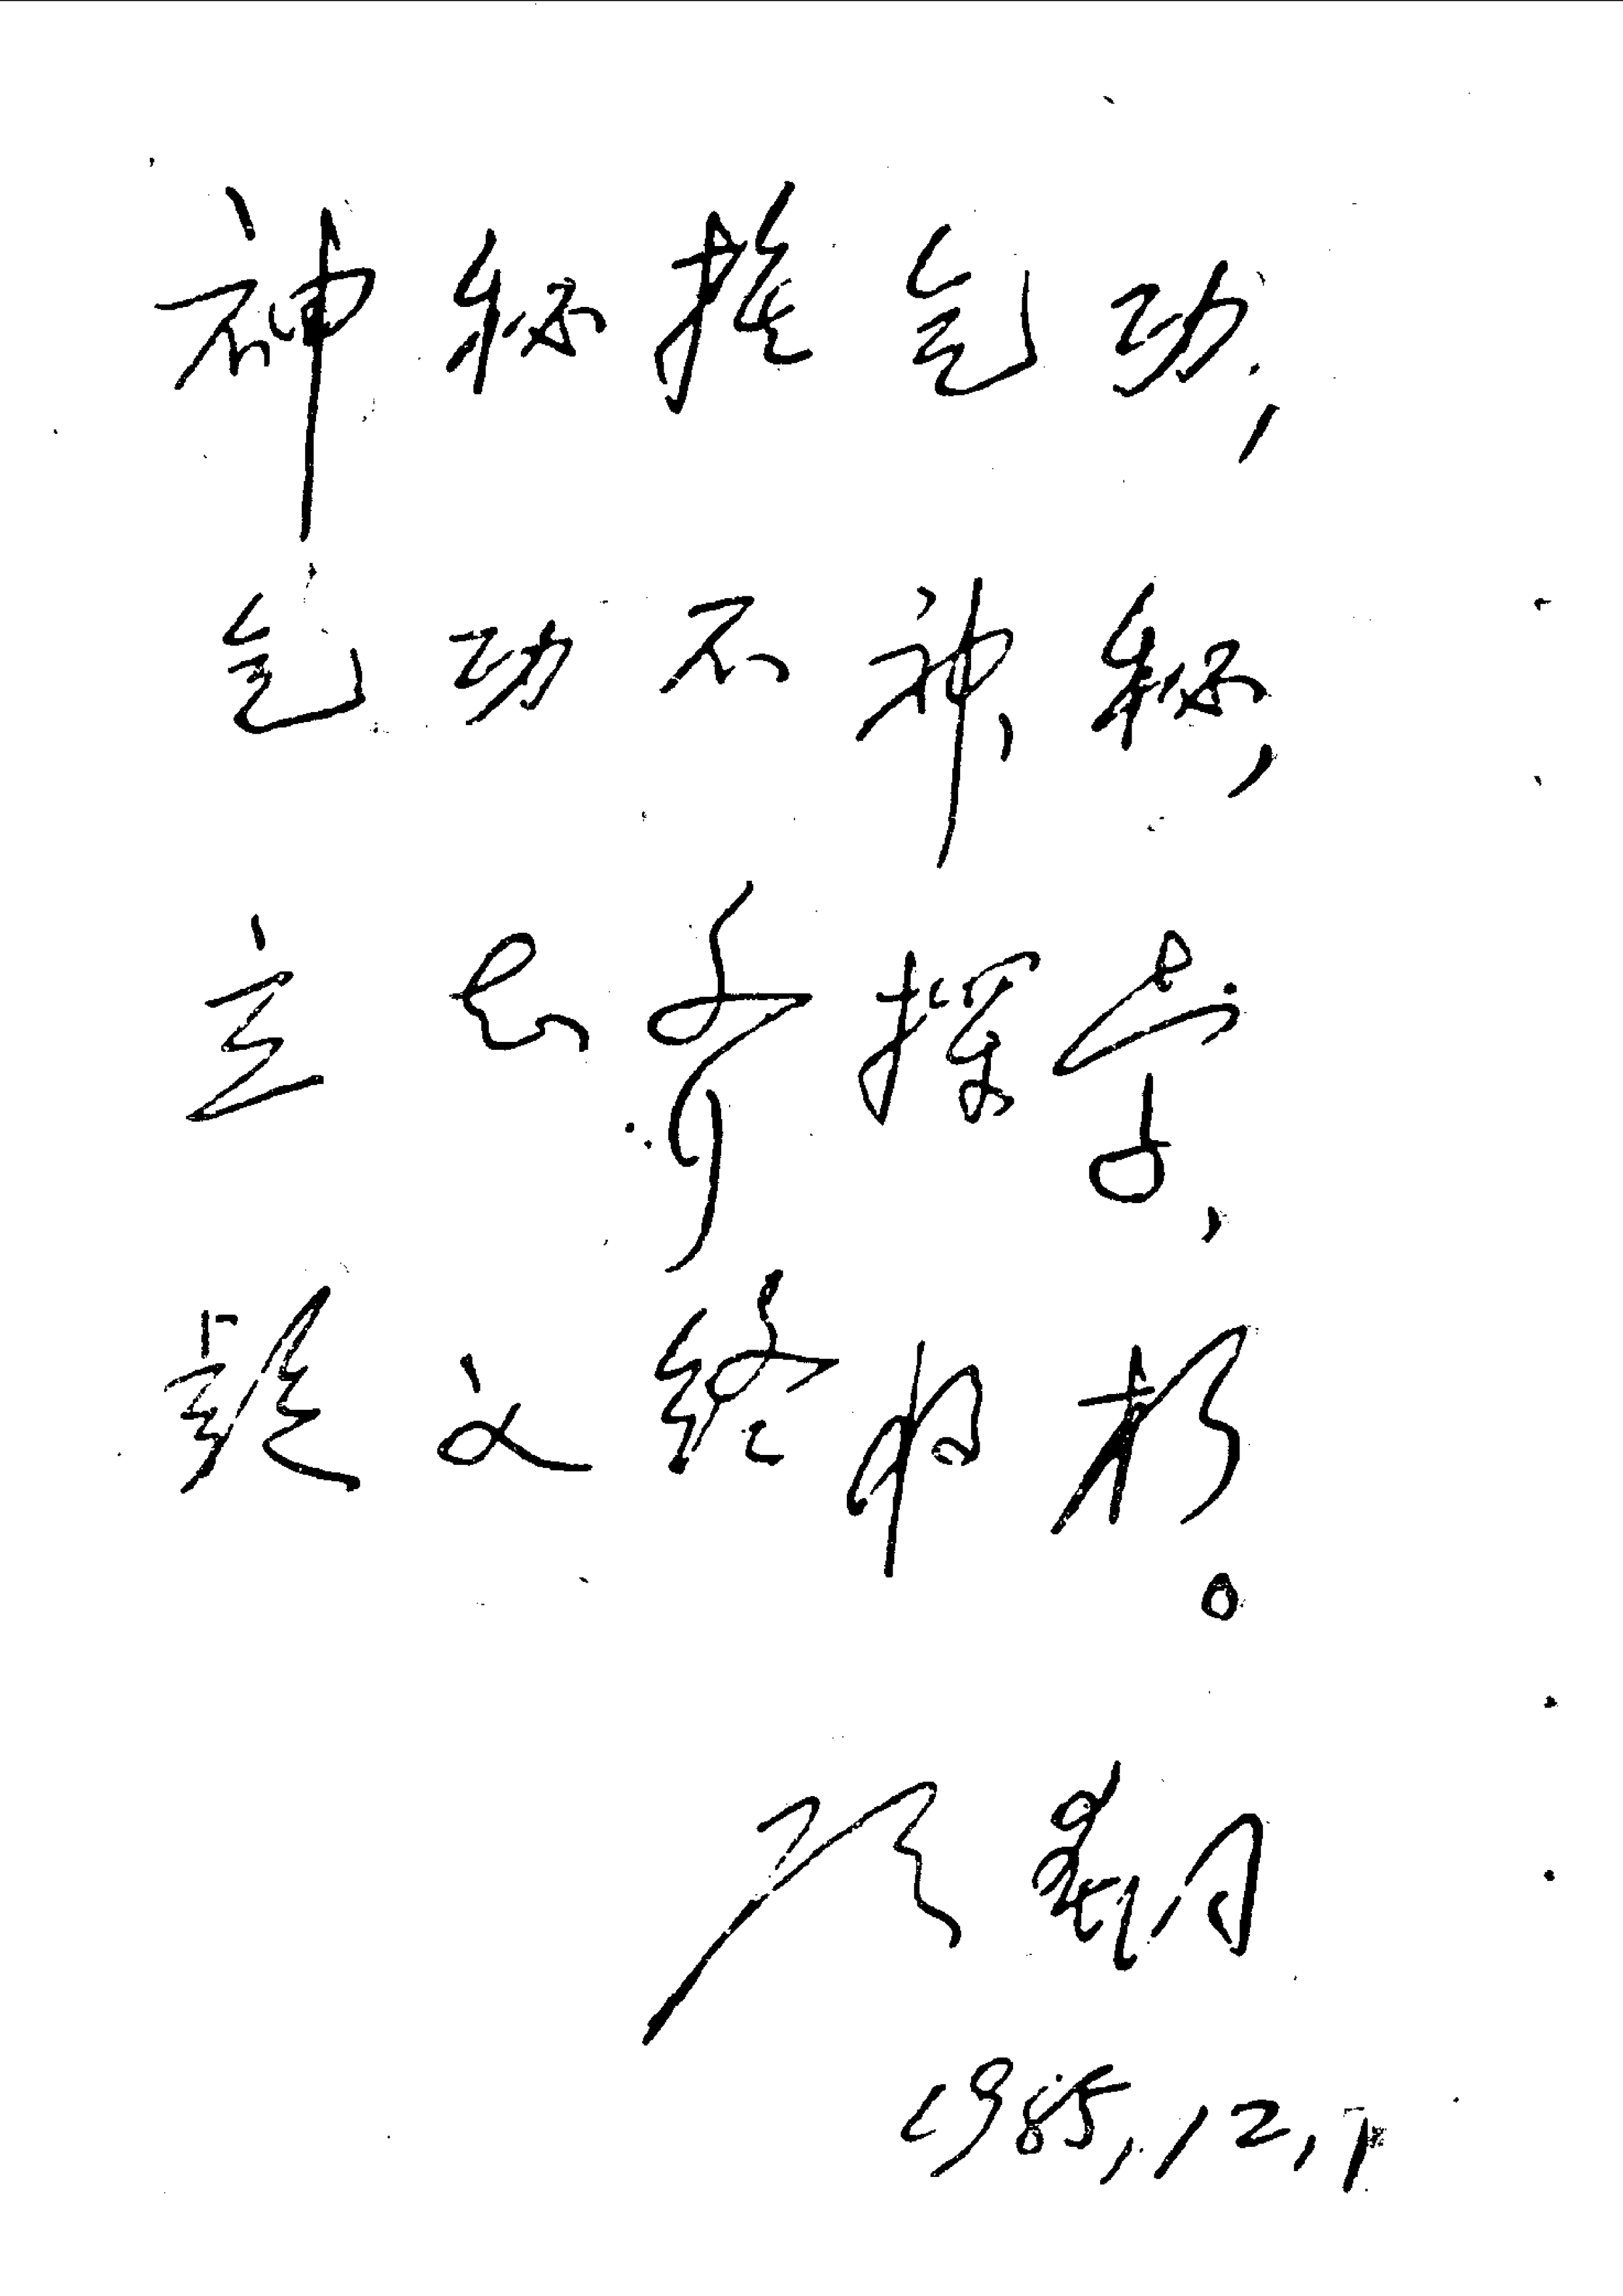 神秘推气功,
气功不神秘,
立志齐探学,
疑义终明析。
张震寰
1985,12,1